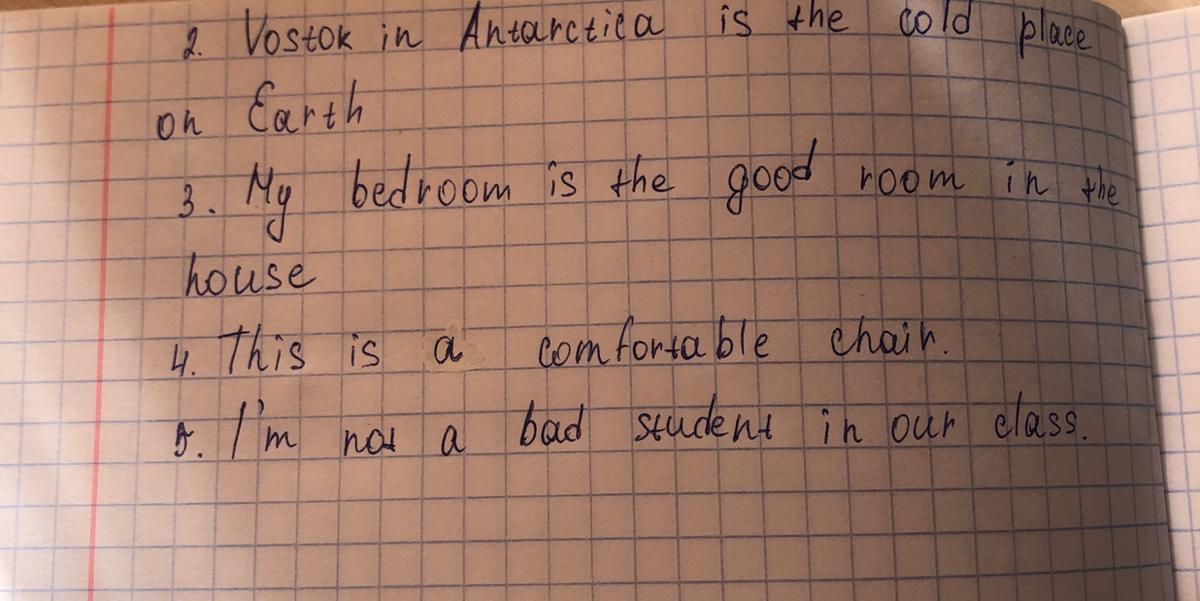 2. Vostok in Antarctica is the cold place
on Earth
3. My bedroom is the good room in the
house
4. This is a comfortable chair.
5. I'm not a bad student in our class.